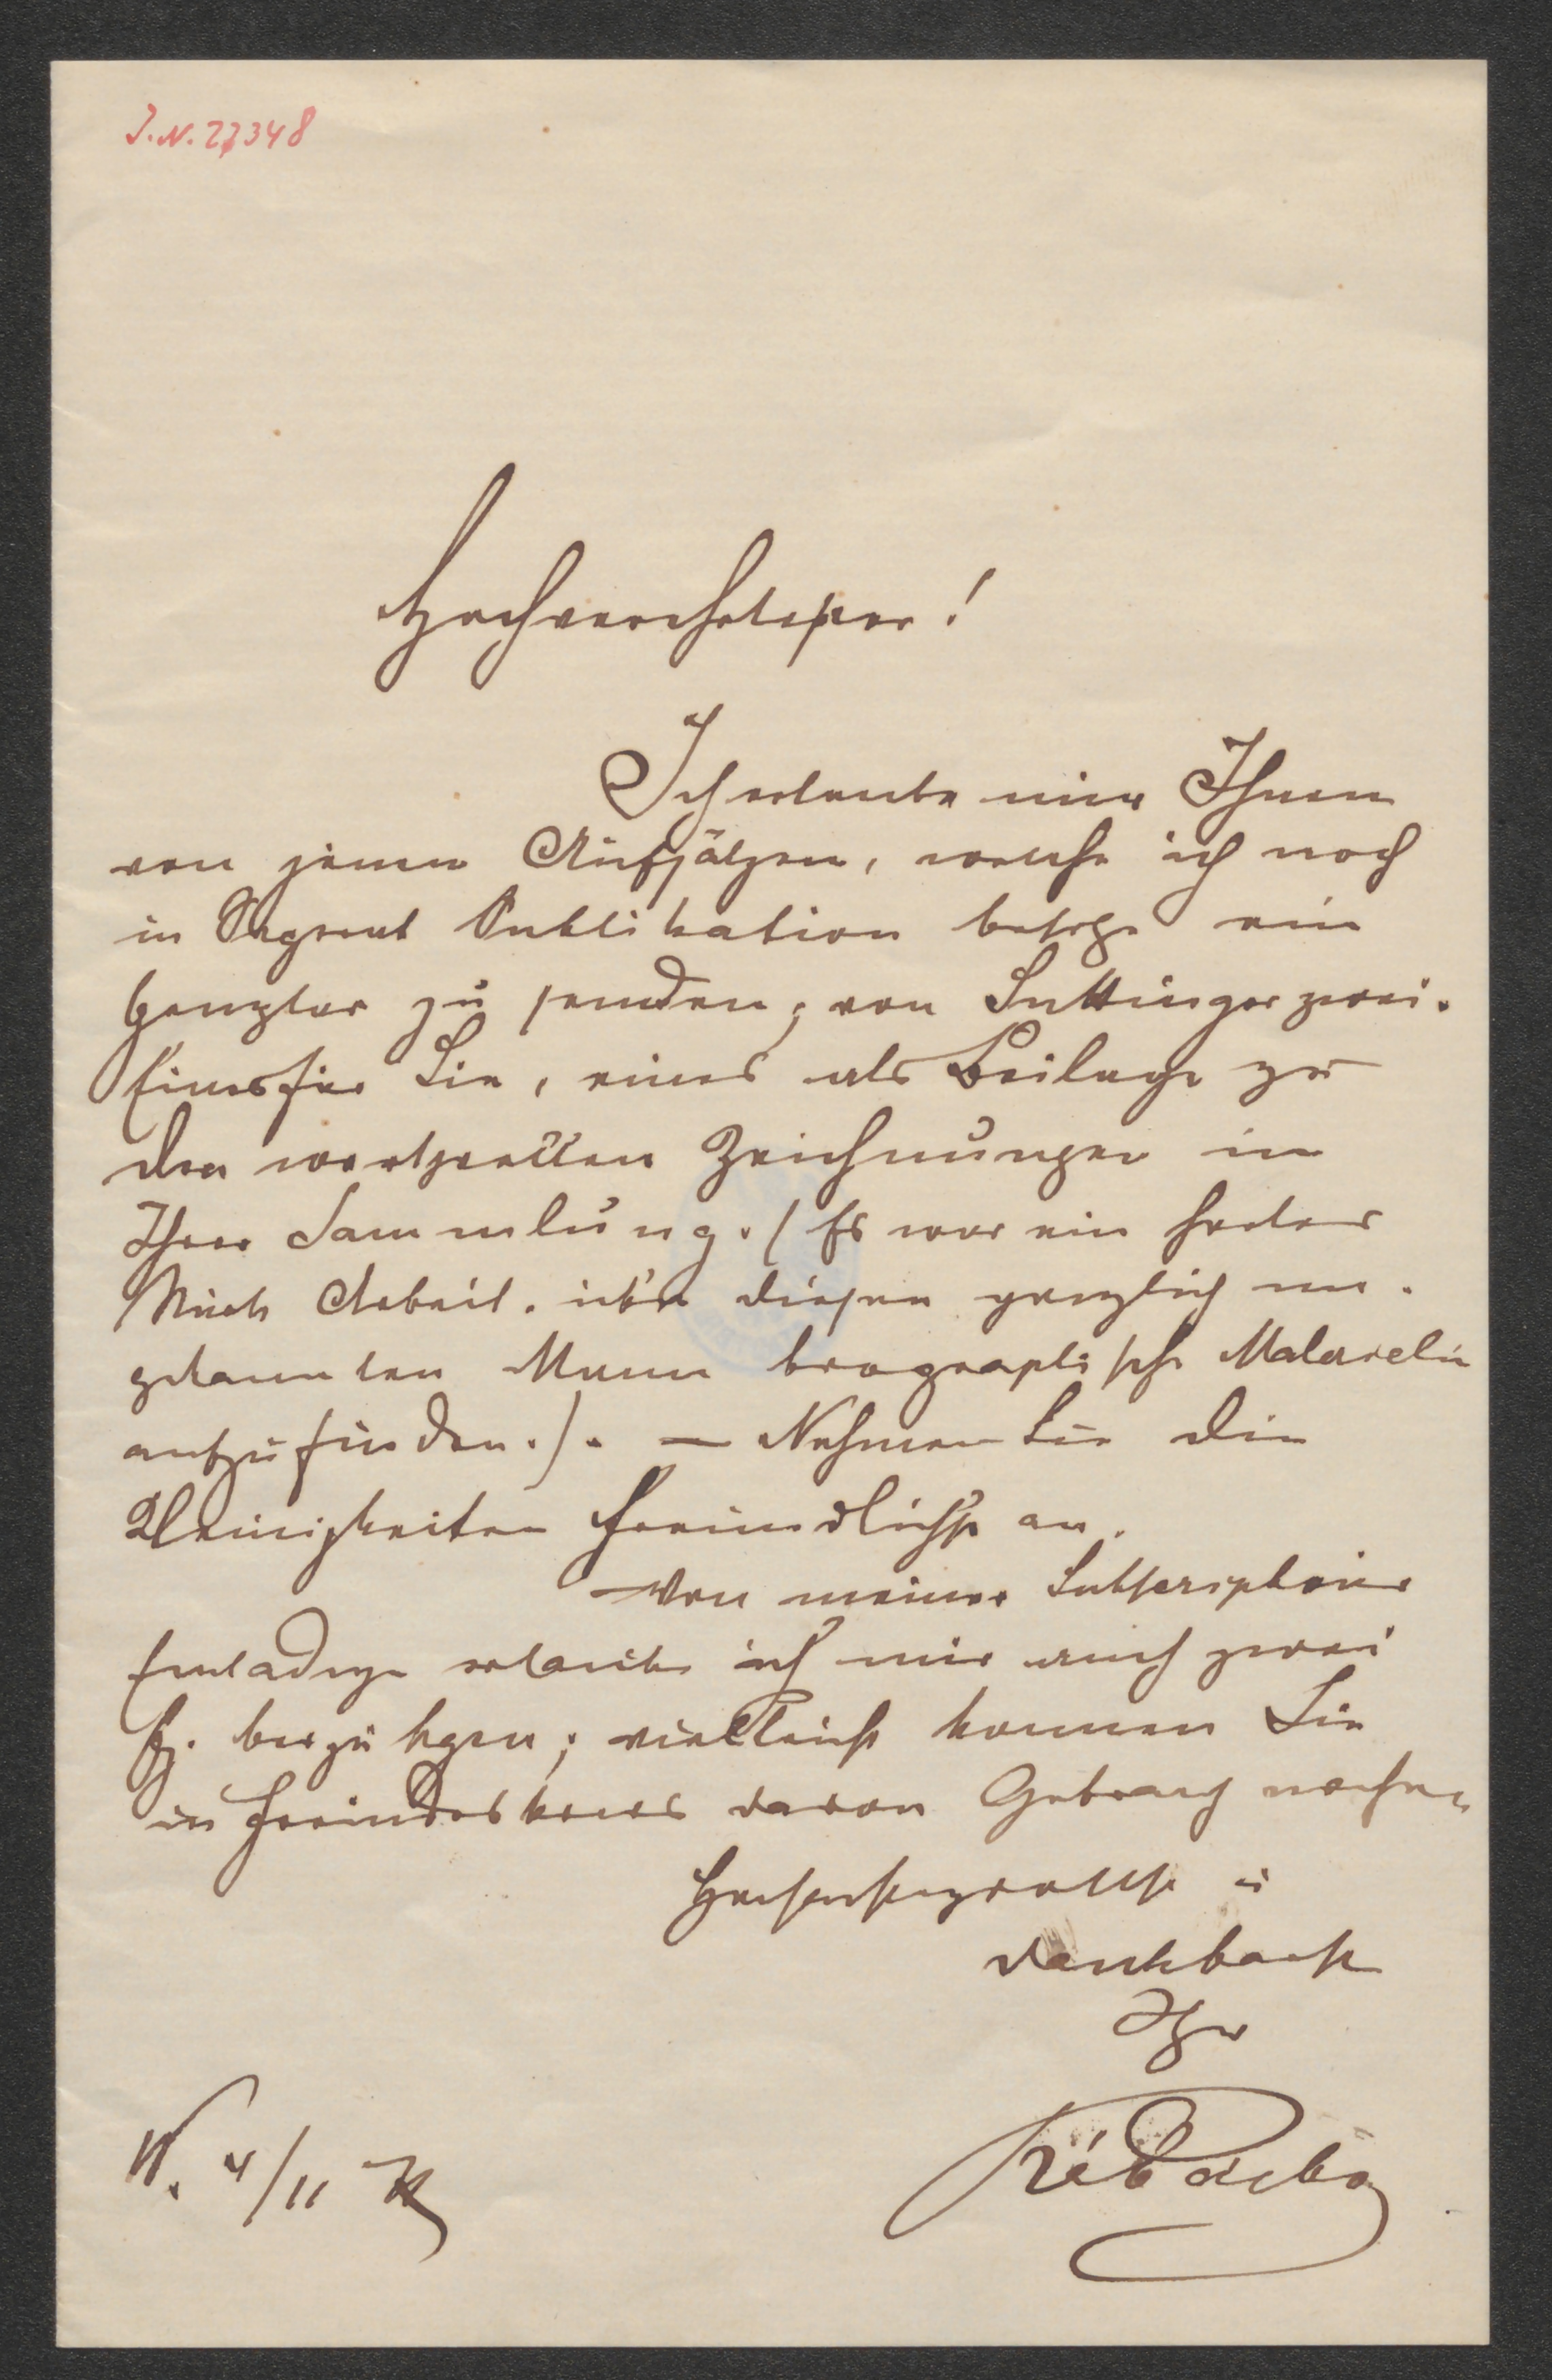 J.N. 27348
Hochverehrtester!
Ich erlaube mir Ihnen
von jenen Aufsätzen, welche ich noch
in Separat Publikation besitze ein
zu senden; von Suttinger zwei.
Eines für Sie, eines als Beilage zu
den wertvollen Zeichnungen in
Ihrer Sammlung. (Es war ein
Arbeit. über diesen gänzlich un-
gekannten Mann biographische
aufzufinden.). — Nehmen Sie die
Kleinigkeiten freundlichst an.
Von meiner Subscriptions
Einladung erlaube ich mir auch zwei
Ex. beizulegen; vielleicht können Sie
in Freundeskreis davon Gebrauch machen
Hochachtungsvollst u
dankbarst
Ihr
W. 4/11